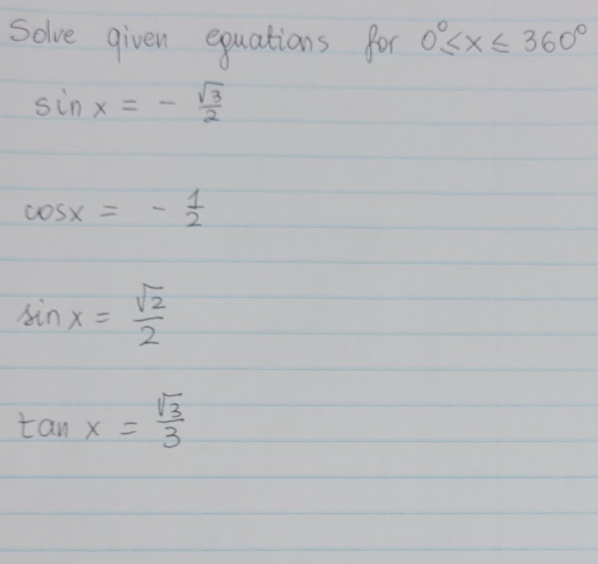 Solve given equations for 0°≤x≤ 360°
sin x = - √3/2
cosx = - 1/2
sin x = √2/2
tan x = √3/3